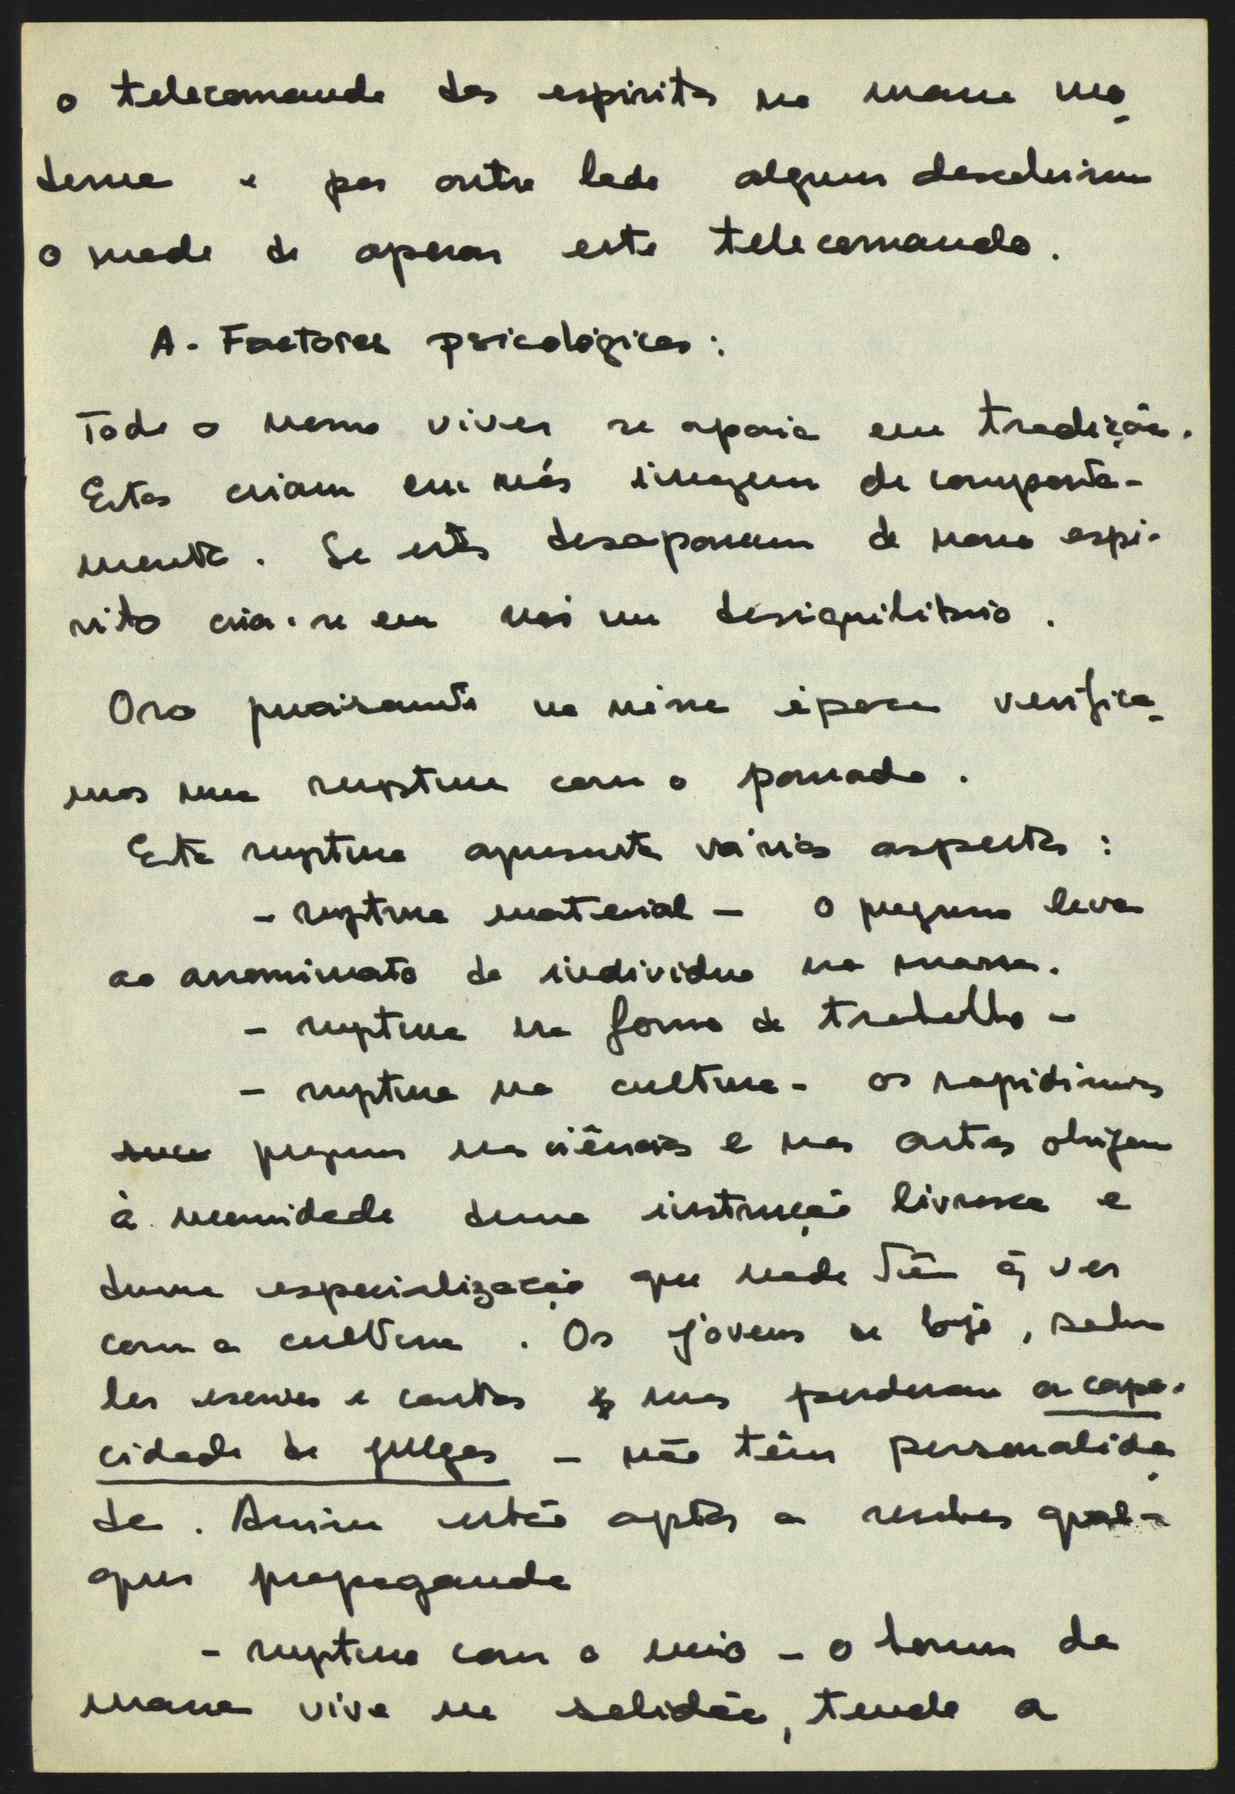 o telecomando dos espiritos na massa mo-
derna e por outro lado alguns descobriram
o modo de operar este telecomando.
A - Factores psicológicos:
Todo o nosso viver se apoia em tradições.
Estas criam em nós imagens de comporta-
mento. Se estas desaparecem de nosso espí-
rito cria-se em nós um desiquilibrio.
Ora precisamente na nossa época verifica-
mos uma ruptura com o passado.
Esta ruptura apresenta vários aspectos:
- ruptura material - o progresso leva
ao anonimato do individuo na massa.
- ruptura na forma de trabalho -
- ruptura na cultura - os rapidissimos
progressos nas ciências e nas artes obrigam
à necessidade duma instrução livresca e
duma especialização que nada têm q ver
com a cultura. Os jovens de hoje, sabem
ler escrever e contar mas perderam a capa-
cidade de julgar - não têm personalida-
de. Assim estão aptos a receber qual-
quer propaganda
- ruptura com o meio - o homem da
massa vive na solidão, tende a